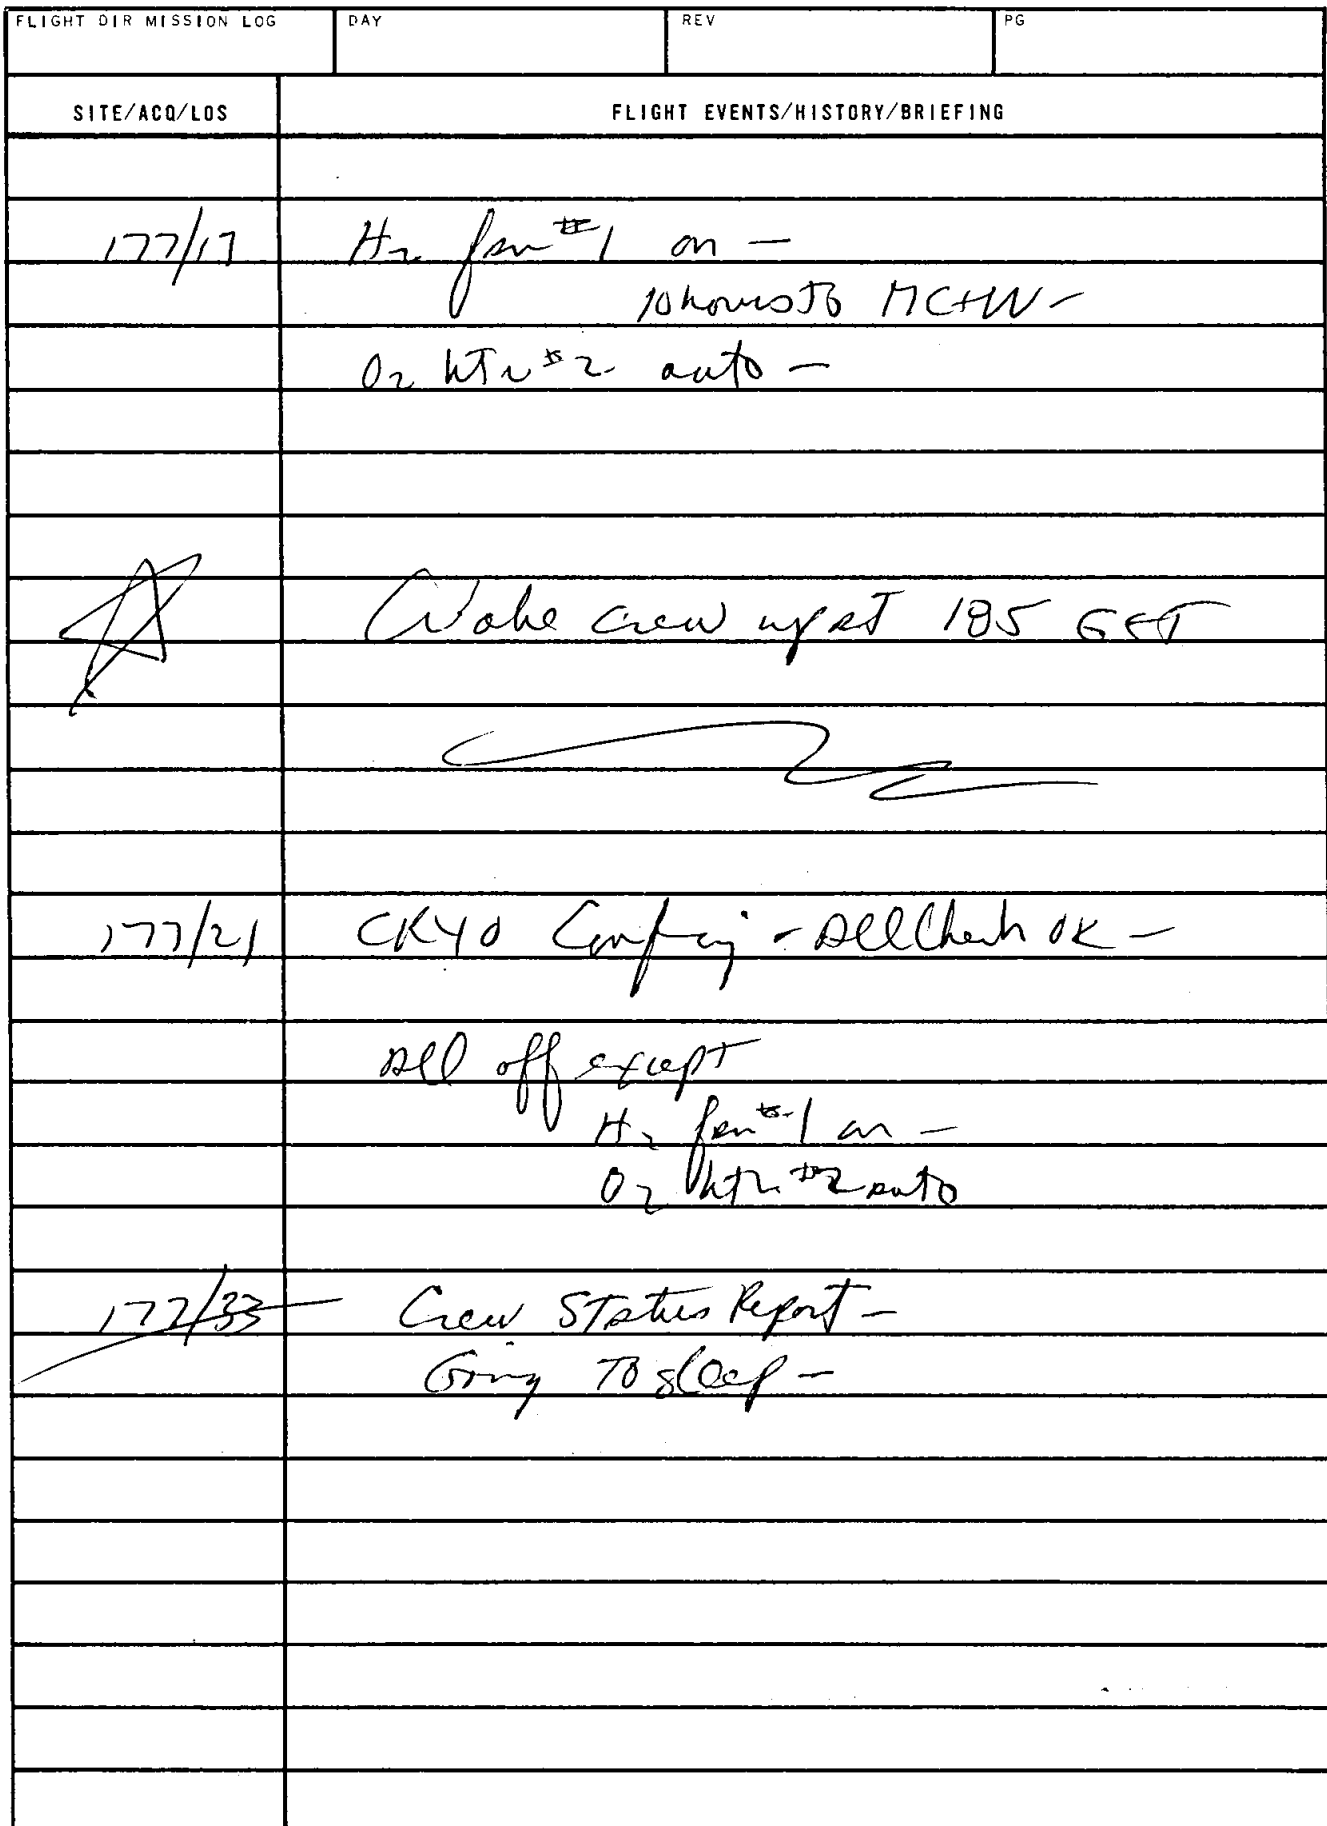 FLIGHT DIR MISSION LOG DAY REV PG
SITE/ACQ/LOS FLIGHT EVENTS/HISTORY/BRIEFING
177/17 H2 fan #1 on —
10 hours to MC+W —
O2 htr #2 auto —
Wake crew up at 185 GET
177/21 CRYO Config - All Check OK —
All off except
H2 fan #1 on —
O2 htr #2 auto
177/33 Crew Status Report —
Going to sleep —